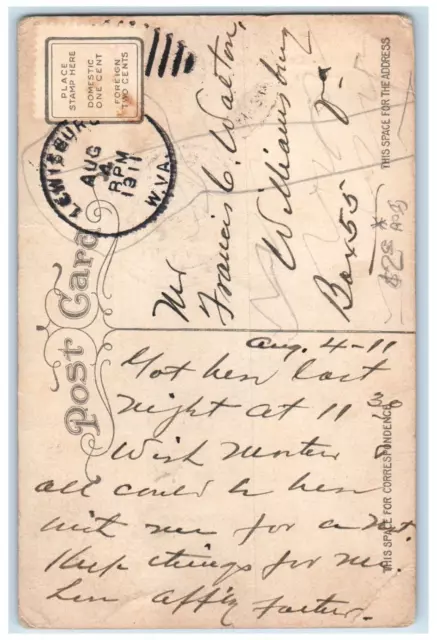 PLACE
STAMP HERE
DOMESTIC
ONE CENT
FOREIGN
TWO CENTS
LEWISBURG
AUG
4
RPM
1911
W.VA.
Post Card
THIS SPACE FOR THE ADDRESS
Mr
Francis C. Walton,
Williamsburg
Va
Box 55
THIS SPACE FOR CORRESPONDENCE
Aug. 4-11
Got here last
night at 11 30
Wish &
all could be here
with me for a
Keep things for me.